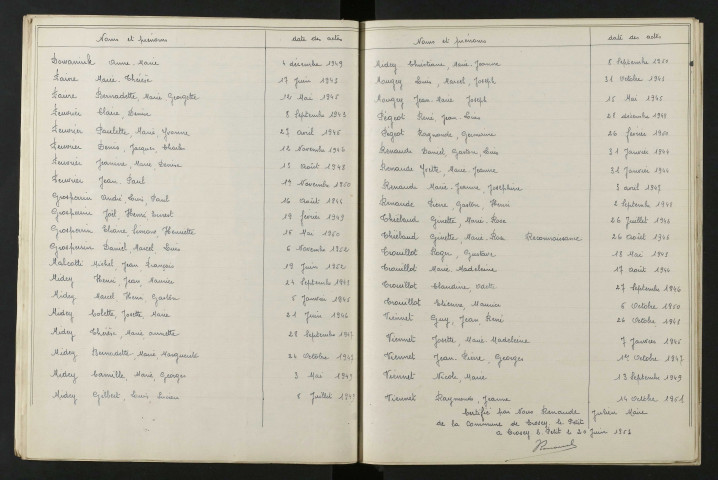 Noms et prénoms date des actes
Anne Marie 4 décembre 1949
Faivre Marie Thérèse 17 Juin 1943
Faivre Bernadette, Marie Georgette 12 Mai 1945
Feuvrier Claire, Denise 3 Septembre 1943
Feuvrier Paulette, Marie Yvonne 23 avril 1945
Feuvrier Denis, Jacques, Charles 12 Novembre 1946
Feuvrier Jeannine, Marie, Denise 13 Août 1948
Feuvrier Jean Paul 19 Novembre 1950
Grosperrin André Louis, Paul 16 août 1944
Grosperrin Joël Henri Ernest 19 février 1949
Grosperrin Eliane Simone, Henriette 15 Mai 1950
Grosperrin Daniel Marcel Louis 6 Novembre 1952
Malcotti Michel, Jean François 19 Juin 1952
Midey Henri, Jean Maurice 24 Septembre 1943
Midey Marcel Henri Gaston 5 Janvier 1945
Midey Colette, Josette Marie 21 Juin 1946
Midey Thérèse, Marie Annette 28 Septembre 1947
Midey Bernadette, Marie Marguerite 24 Octobre 1948
Midey Camille, Marie Georges 3 Mai 1949
Midey Gilbert Louis Lucien 6 Juillet 1949
Noms et prénoms date des actes
Midey Christiane, Marie Jeanne 8 Septembre 1950
Mougey Louis, Marcel, Joseph 31 Octobre 1943
Mougey Jean Marie Joseph 15 Mai 1945
Pégeot René, Jean Louis 28 décembre 1948
Pégeot Raymonde, Germaine 26 février 1950
Renaude Daniel, Gaston, Louis 31 Janvier 1944
Renaude Yvette, Marie Jeanne 31 Janvier 1944
Renaude Marie Jeanne, Joséphine 3 avril 1947
Renaude Pierre, Gaston, Henri 2 Septembre 1948
Thiébaud Ginette, Marie Rose 26 Juillet 1946
Thiébaud Ginette, Marie Rose Reconnaissance 26 août 1946
Trouillot Roger, Gustave 18 Mai 1943
Trouillot Marie Madeleine 17 août 1944
Trouillot Claudine, Odette 27 Septembre 1946
Trouillot Etienne, Maurice 6 Octobre 1950
Viennet Guy, Jean René 26 Octobre 1943
Viennet Josette, Marie Madeleine 7 Janvier 1945
Viennet Jean Pierre, Georges 1er Octobre 1947
Viennet Nicole, Marie 13 Septembre 1949
Viennet Raymonde, Jeanne 14 Octobre 1951
Certifié par Nous Renaude Julien Maire
de la Commune de Crosey le Petit
a Crosey le Petit le 20 Juin 1953